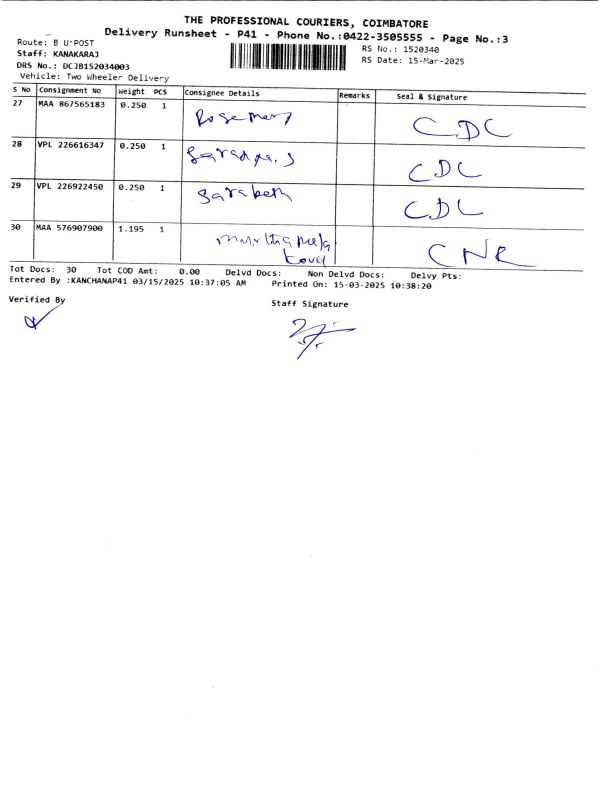 THE PROFESSIONAL COURIERS, COIMBATORE
Delivery Runsheet - P41 - Phone No.:0422-3505555 - Page No.:3
Route: B U-POST
RS No.: 1520340
Staff: KANAKARAJ
RS Date: 15-Mar-2025
DRS No.: DCJB152034003
Vehicle: Two Wheeler Delivery
S No Consignment No Weight PCS Consignee Details Remarks Seal & Signature
27 MAA 867565183 0.250 1 Rosemary CDC
28 VPL 226616347 0.250 1 CDC
29 VPL 226922450 0.250 1 CDC
30 MAA 576907900 1.195 1 CNR
Tot Docs: 30 Tot COD Amt: 0.00 Delvd Docs: Non Delvd Docs: Delvy Pts:
Entered By :KANCHANAP41 03/15/2025 10:37:05 AM Printed On: 15-03-2025 10:38:20
Verified By
Staff Signature